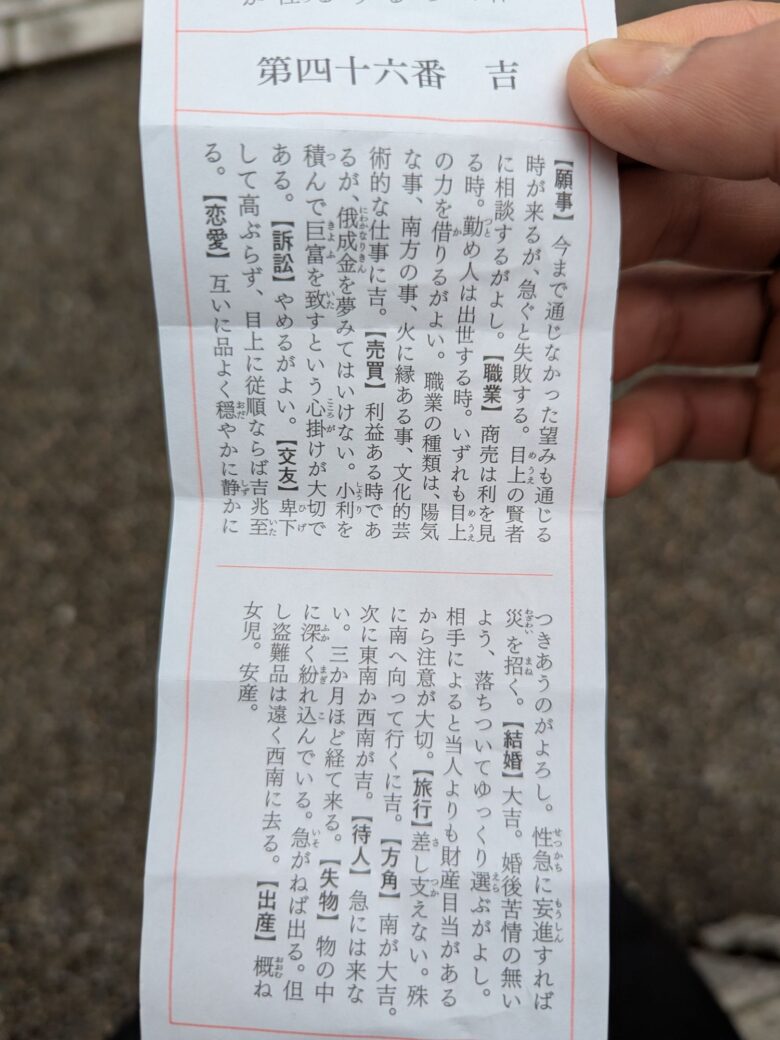 第四十六番　吉
【願事】今まで通じなかった望みも通じる
時が来るが、急ぐと失敗する。目上の賢者
に相談するがよし。【職業】商売は利を見
る時。勤め人は出世する時。いずれも目上
の力を借りるがよい。職業の種類は、陽気
な事、南方の事、火に縁ある事、文化的芸
術的な仕事に吉。【売買】利益ある時であ
るが、俄成金を夢みてはいけない。小利を
積んで巨富を致すという心掛けが大切で
ある。【訴訟】やめるがよい。【交友】卑下
して高ぶらず、目上に従順ならば吉兆至
る。【恋愛】互いに品よく穏やかに静かに
つきあうのがよろし。性急に妄進すれば
災を招く。【結婚】大吉。婚後苦情の無い
よう、落ちついてゆっくり選ぶがよし。
相手によると当人よりも財産目当がある
から注意が大切。【旅行】差し支えない。殊
に南へ向って行くに吉。【方角】南が大吉。
次に東南か西南が吉。【待人】急には来な
い。三か月ほど経て来る。【失物】物の中
に深く紛れ込んでいる。急がねば出る。但
し盗難品は遠く西南に去る。【出産】概ね
女児。安産。